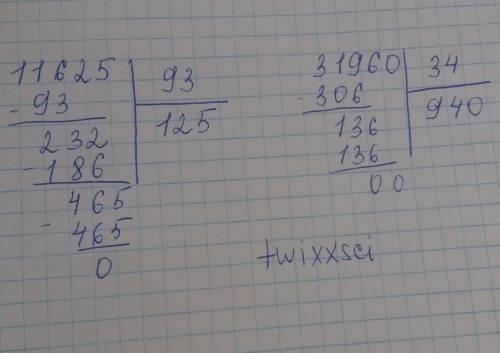 11625 93
- 93 125
232
- 186
465
- 465
0
31960 34
- 306 940
136
136
00
twixxsci